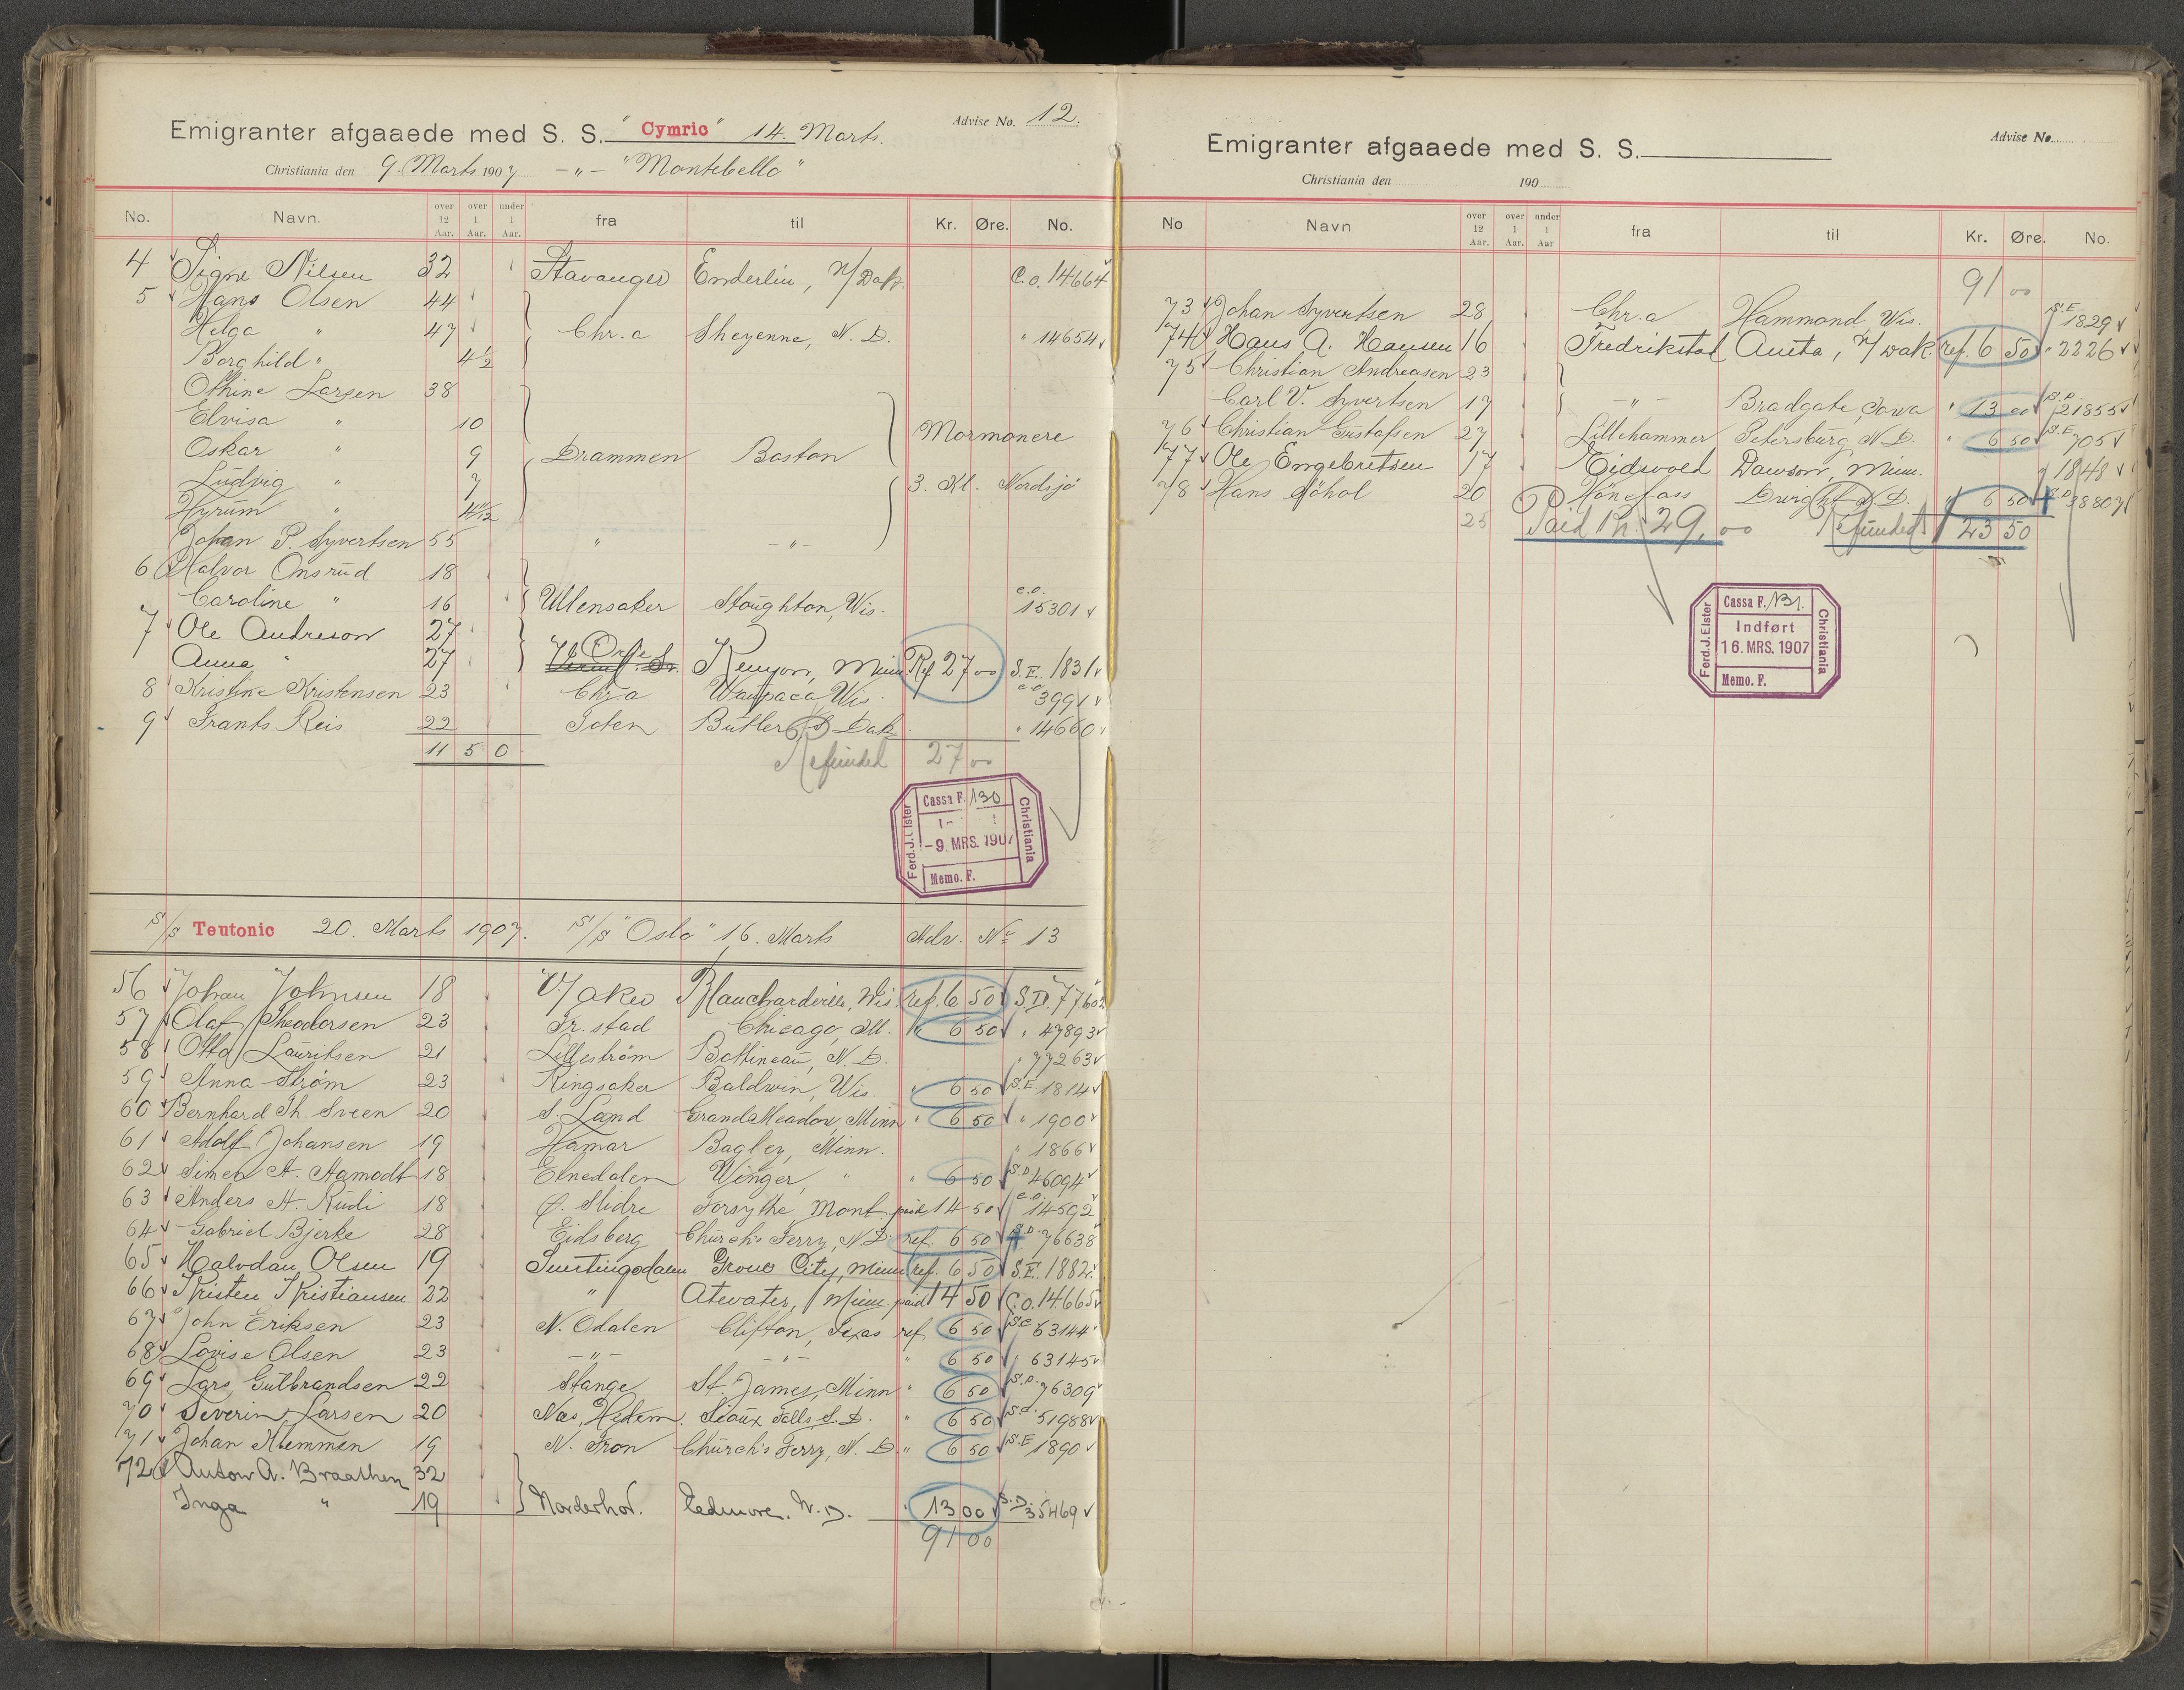 Emigranter afgaaede med S. S. "Cymric" 14. Marts. Advise No. 12.
Christiania den 9. Marts 1907 -"- "Montebello"
No. Navn. over 12 Aar. over 1 Aar. under 1 Aar. fra til Kr. Øre. No.
4 Signe Nilsen 32 Stavanger Enderlin, N/Dak. C.O. 14664
5 Hans Olsen 44
Helga " 47 Chr.a Sheyenne, N. D. " 14654
Borghild " 4 1/2
Othine Larsen 38
Elvisa " 10 Mormonere
Oskar " 9 Drammen Boston
Ludvig " 7 3. Kl. Nordsjö
Hyrum " 4 11/12
Johan P. Syvertsen 55 " -"-
6 Halvor Onsrud 18
Caroline " 16 Ullensaker Stoughton, Wis. C.O. 15301
7 Ole Andreson 27
Anna " 27 Kenyon, Minn. Ref. 27 00 S.E. 1831
8 Kristine Kristensen 23 Chr.a Waupaca Wis. C.O. 3991
9 Frants Reis 22 Toten Butler, S Dak. " 14660
11 5 0 Refunded 27 00
Ferd. J. Elster Cassa F. 130 Christiania
-9. MRS. 1907
Memo. F.
S/S Teutonic 20. Marts 1907. S/S "Oslo" 16. Marts Adv. No 13
56 Johan Johnsen 18 V/Aker Blanchardville, Wis. ref. 6 50 S.D. 77602
57 Olaf Theodorsen 23 Fr.stad Chicago, Ill. " 6 50 " 47893
58 Otto Lauritsen 21 Lilleström Bottineau, N. D. " 77263
59 Anna Strøm 23 Ringsaker Baldwin, Wis. " 6 50 S.E. 1814
60 Bernhard Th. Sveen 20 S. Land Grand Meadow, Minn " 6 50 " 1900
61 Adolf Johansen 19 Hamar Bagley, Minn. " 1866
62 Simen A. Aamodt 18 Elnedalen Winger, " " 6 50 S.D. 46094
63 Anders A. Rudi 18 Ø. Slidre Forsythe Mont. paid 14 50 C.O. 14592
64 Gabriel Bjerke 28 Eidsberg Church's Ferry, N.D. ref. 6 50 S.D. 76638
65 Halvdan Olsen 19 Snertingdalen Grove City, Minn ref. 6 50 S.E. 1882
66 Kristen Kristiansen 22 " Atwater, Minn. paid 14 50 C.O. 14665
67 John Eriksen 23 N. Odalen Clifton, Texas ref 6 50 S.C. 63144
68 Lovise Olsen 23 -"- -"- " 6 50 " 63145
69 Lars Gulbrandsen 22 Stange St. James, Minn " 6 50 S.D. 76309
70 Severin Larsen 20 Næs, Hedem. Sioux Falls S. D. " 6 50 S.d. 51988
71 Johan Klemmen 19 N. Fron Church's Ferry, N. D. " 6 50 S.E 1890
72 Anton A. Braathen 32
Inga " 19 Norderhov. Edmore. N. D. " 13 00 S.D. 35469
91 00
Emigranter afgaaede med S. S. Advise No.
Christiania den 190
No Navn over 12 Aar. over 1 Aar. under 1 Aar fra til Kr. Øre. No.
91 00
73 Johan Syvertsen 28 Chr.a Hammond, Wis. S.E. 1829
74 Hans A. Hansen 16 Fredrikstad Aneta, N/Dak. ref. 6 50 " 2226
75 Christian Andreasen 23
Carl V. Syvertsen 17 -"- Bradgate, Iowa " 13 00 S.D. 21855
76 Christian Gustafsen 27 Lillehammer Petersburg, N. D. " 6 50 S.E 705
77 Ole Engebretsen 17 Eidsvold Dawson, Minn. " 1848
78 Hans Göhol 20 Hönefoss Dwight N. D. " 6 50 S.D. 38807
25 Paid 29,00 Refunded 123 50
Ferd. J. Elster Cassa F. 131. Christiania
Indført
16. MRS. 1907
Memo. F.